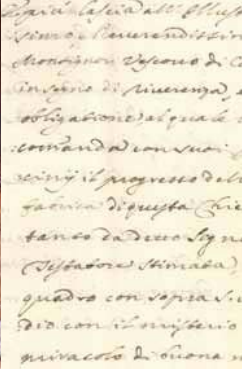 Di più lascia all' Illus
simo, e Reverendissim
Monsignor Vescovo di C
in segno di riverenza, e
obligatione, al quale
comanda con suoi
il progretto del
fabrica di questa Chie
tanto da detto Sign
(Testatore stimata)
quadro con sopra S.
dio con il misterio
miracolo di buona m